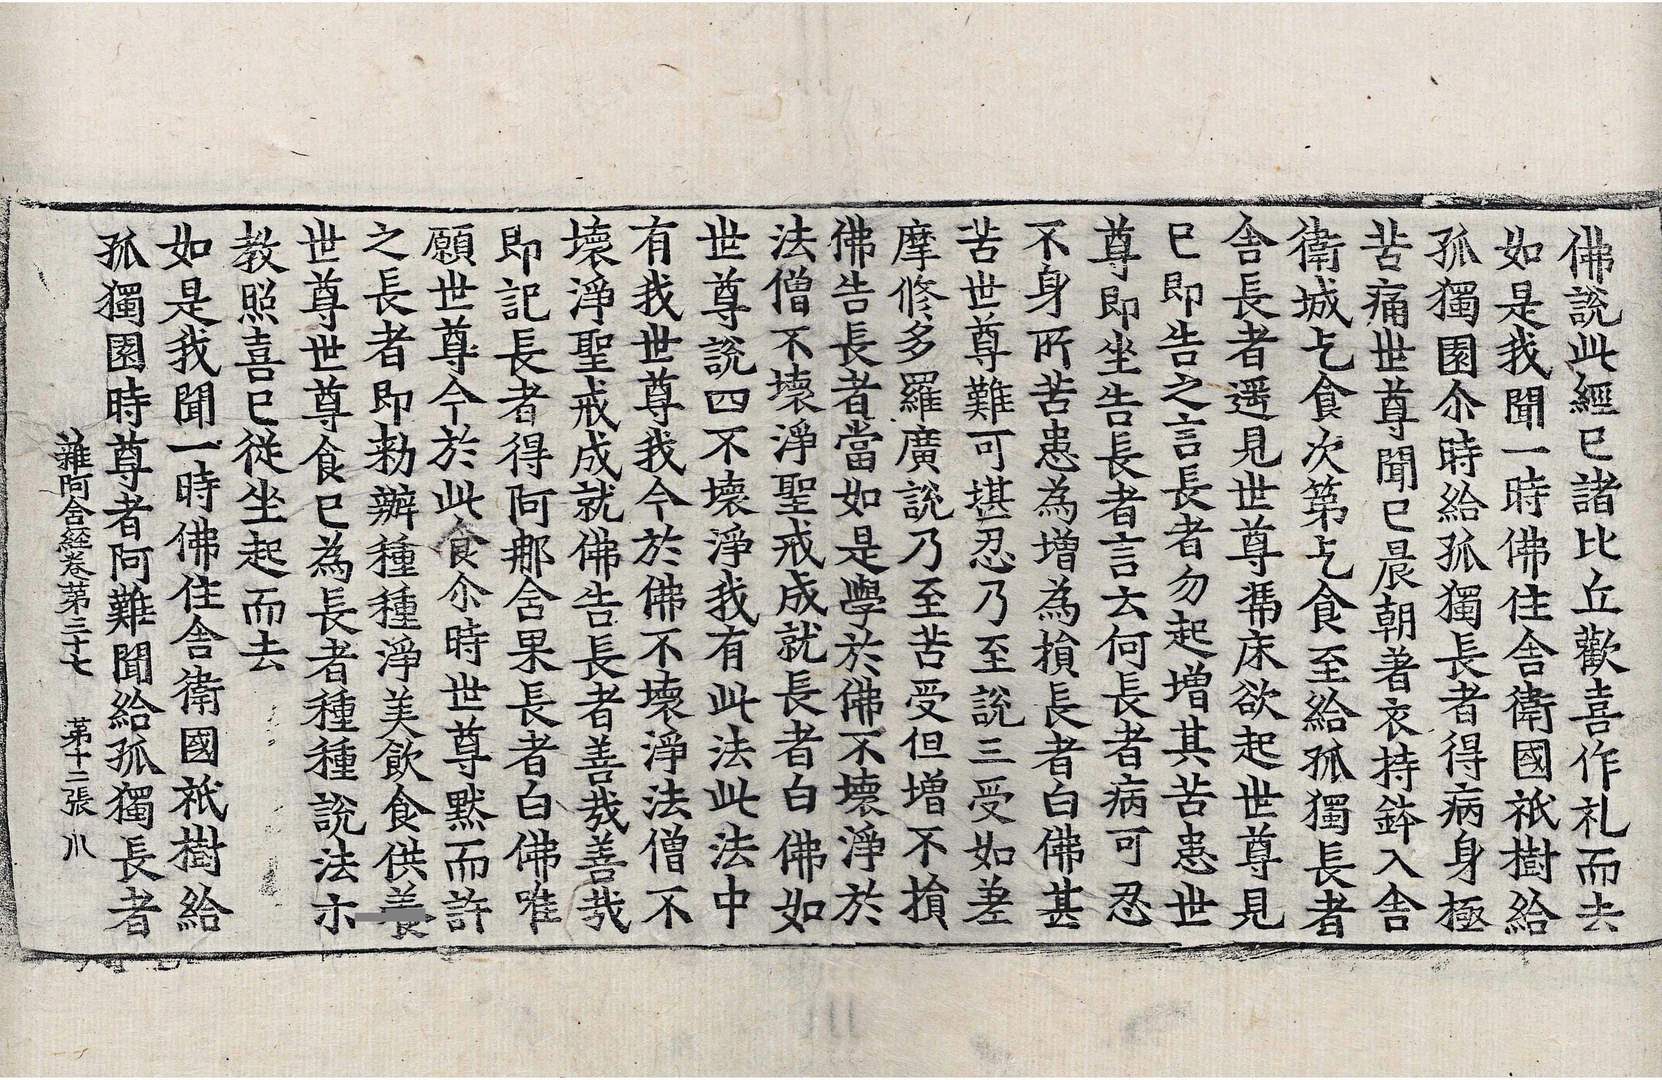 佛說此經已諸比丘歡喜作礼而去
如是我聞一時佛住舍衛國祇樹給
孤獨園尒時給孤獨長者得病身極
苦痛世尊聞已晨朝著衣持鉢入舍
衛城乞食次第乞食至給孤獨長者
舍長者遥見世尊馮床欲起世尊見
已即告之言長者勿起增其苦患世
尊即坐告長者言云何長者病可忍
不身所苦患為增為損長者白佛甚
苦世尊難可堪忍乃至說三受如差
摩修多羅廣說乃至苦受但增不損
佛告長者當如是學於佛不壞淨於
法僧不壞淨聖戒成就長者白佛如
世尊說四不壞淨我有此法此法中
有我世尊我今於佛不壞淨法僧不
壞淨聖戒成就佛告長者善哉善哉
即記長者得阿那含果長者白佛唯
願世尊今於此食尒時世尊默而許
之長者即勑辦種種淨美飲食供養
世尊世尊食已為長者種種說法示
教照喜已從坐起而去
如是我聞一時佛住舍衛國祇樹給
孤獨園時尊者阿難聞給孤獨長者
雜阿含経卷第三十七 第十二張 八